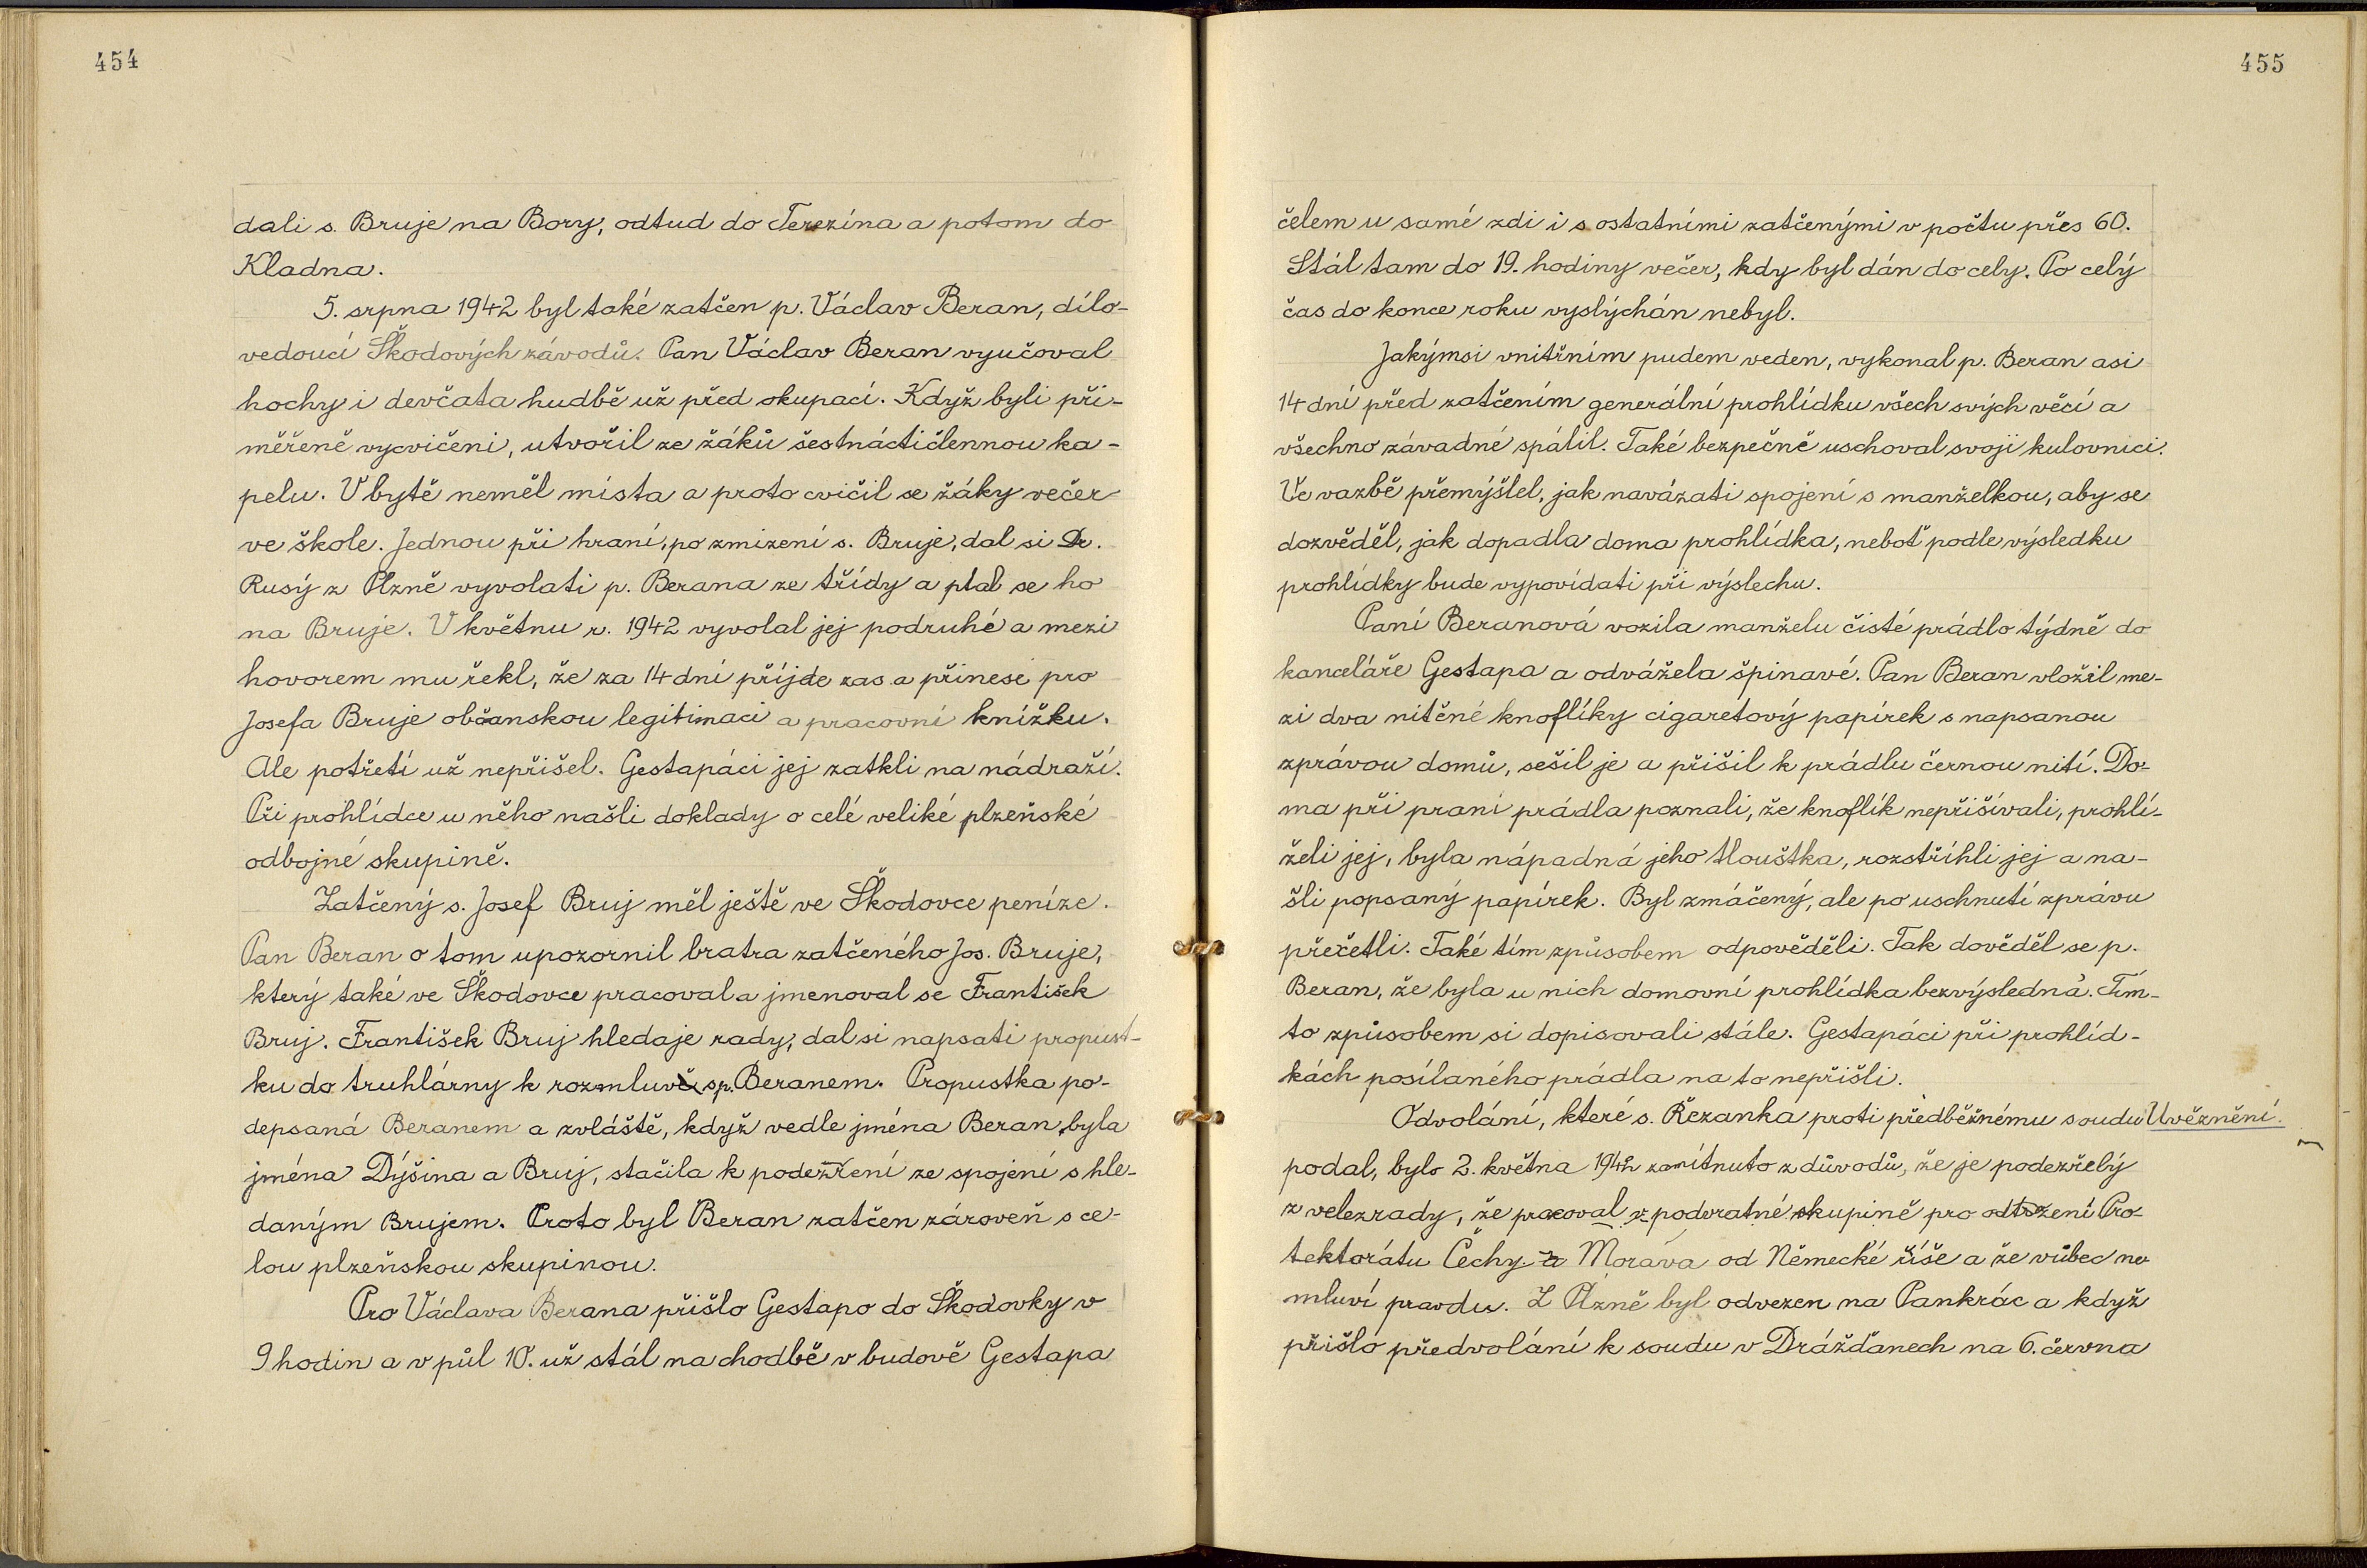 454
dali s. Bruje na Bory, odtud do Terezína a potom do
Kladna.
5. srpna 1942 byl také zatčen p. Václav Beran, dílo-
vedoucí Škodových závodů. Pan Václav Beran vyučoval
hochy i devčata hudbě už před okupací. Když byli při-
měřeně vycvičeni, utvořil ze žáků šestnáctičlennou ka-
pelu. V bytě neměl místa a proto cvičil se žáky večer
ve škole. Jednou při hraní, po zmizení s. Bruje, dal si Dr.
Rusý z Plzně vyvolati p. Berana ze třídy a ptal se ho
na Bruje. V květnu r. 1942 vyvolal jej podruhé a mezi
hovorem mu řekl, že za 14 dní příjde zas a přinese pro
Josefa Bruje občanskou legitimaci a pracovní knížku.
Ale potřetí už nepřišel. Gestapáci jej zatkli na nádraží.
Při prohlídce u něho našli doklady o celé veliké plzeňské
odbojné skupině.
Zatčený s. Josef Bruj měl ještě ve Škodovce peníze.
Pan Beran o tom upozornil bratra zatčeného Jos. Bruje,
který také ve Škodovce pracoval a jmenoval se František
Bruj. František Bruj hledaje rady, dal si napsati propust-
ku do truhlárny k rozmluvě s p. Beranem. Propustka po-
depsaná Beranem a zvláště, když vedle jména Beran, byla
jména Dýšina a Bruj, stačila k podezření ze spojení s hle-
daným Brujem. Proto byl Beran zatčen zároveň s ce-
lou plzeňskou skupinou.
Pro Václava Berana přišlo Gestapo do Škodovky v
9 hodin a v půl 10. už stál na chodbě v budově Gestapa
455
čelem u samé zdi i s ostatními zatčenými v počtu přes 60.
Stál tam do 19. hodiny večer, kdy byl dán do cely. Po celý
čas do konce roku vyslýchán nebyl.
Jakýmsi vnitřním pudem veden, vykonal p. Beran asi
14 dní před zatčením generální prohlídku všech svých věcí a
všechno závadné spálil. Také bezpečně uschoval svoji kulovnici.
Ve vazbě přemýšlel, jak navázati spojení s manželkou, aby se
dozvěděl, jak dopadla doma prohlídka, neboť podle výsledku
prohlídky bude vypovídati při výslechu.
Paní Beranová vozila manželu čisté prádlo týdně do
kanceláře Gestapa a odvážela špinavé. Pan Beran vložil me-
zi dva nitěné knoflíky cigaretový papírek s napsanou
zprávou domů, sešil je a přišil k prádlu černou nití. Do-
ma při praní prádla poznali, že knoflík nepřišívali, prohlí-
želi jej, byla nápadná jeho tlouštka, rozstříhli jej a na-
šli popsaný papírek. Byl zmáčený, ale po uschnutí zprávu
přečetli. Také tím způsobem odpověděli. Tak dověděl se p.
Beran, že byla u nich domovní prohlídka bezvýsledná. Tím-
to způsobem si dopisovali stále. Gestapáci při prohlíd-
kách posílaného prádla na to nepřišli.
Odvolání, které s. Řezanka proti předběžnému soudu Uvěznění.
podal, bylo 2. května 1942 zamítnuto z důvodů, že je podezřelý
z velezrady, že pracoval v podvratné skupině pro odtržení Pro-
tektorátu Čechy a Morava od Německé říše a že vůbec ne
mluví pravdu. Z Plzně byl odvezen na Pankrác a když
přišlo předvolání k soudu v Drážďanech na 6. června